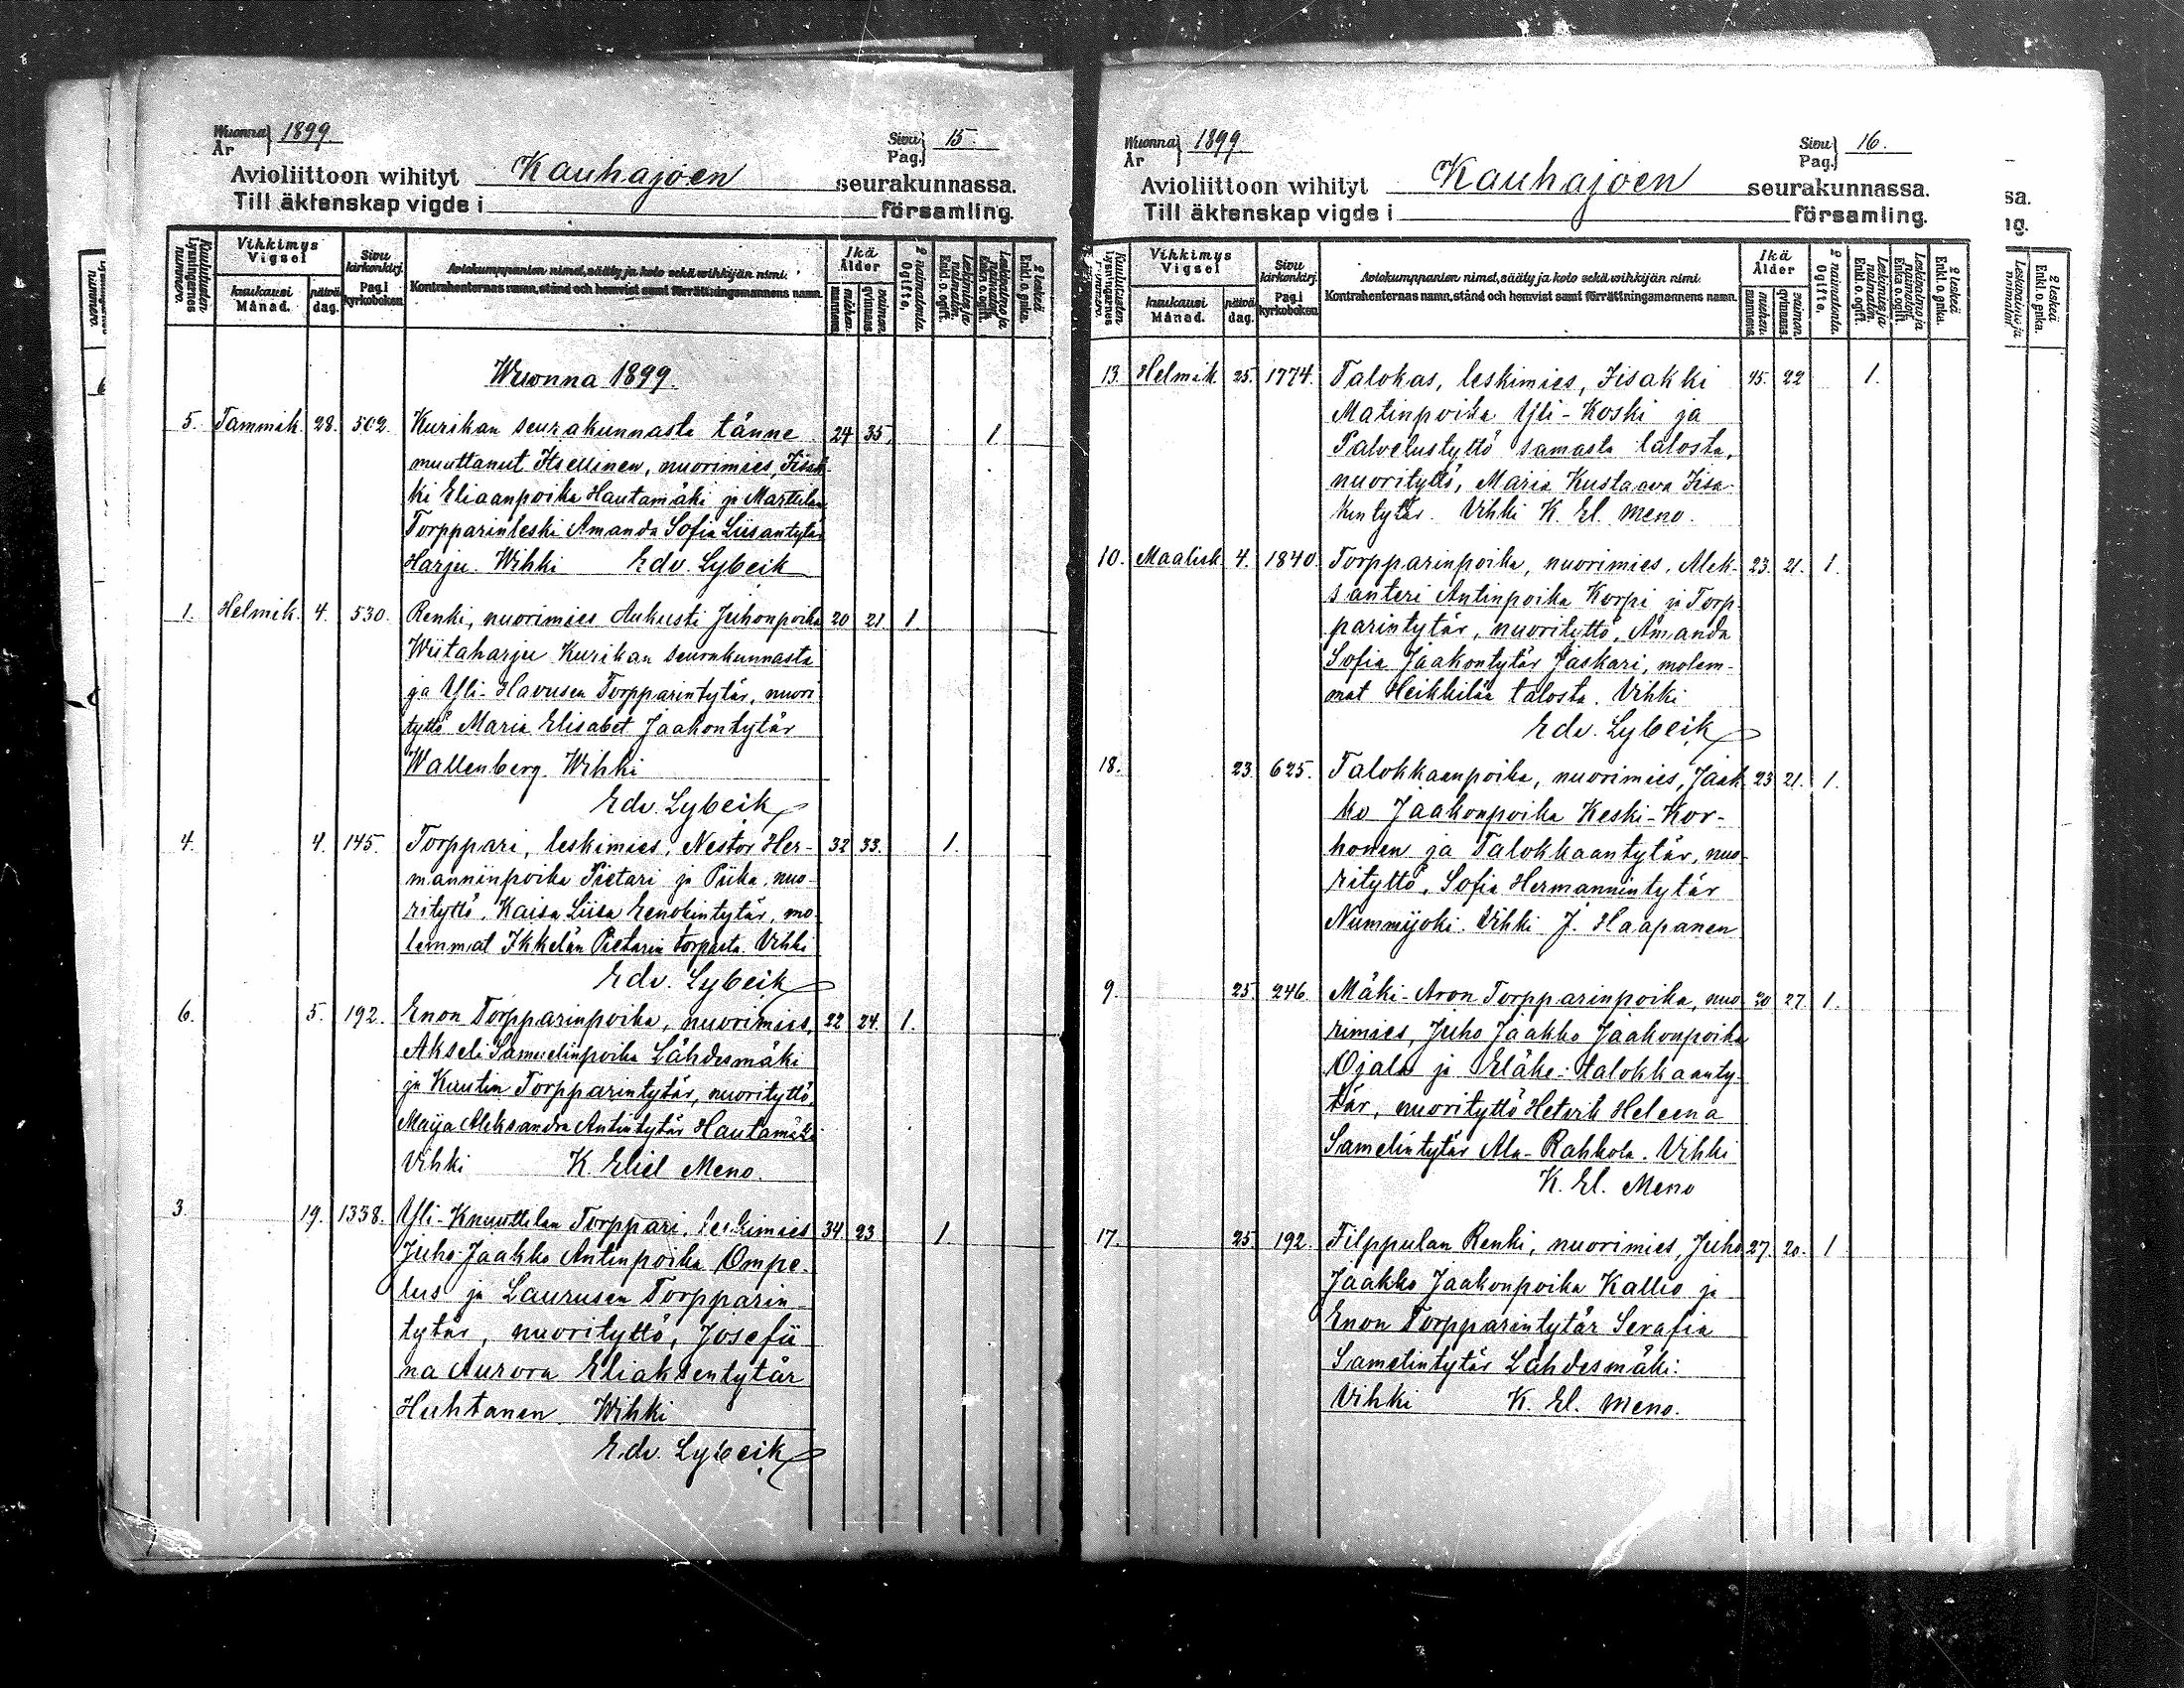 Wuonna År } 1899.
Sivu Pag. } 15.
Avioliittoon wihityt Kauhajoen seurakunnassa.
Till äktenskap vigde i församling.
Kuulutuksen Lysningarnes nummero.
Vihkimys Vigsel
kuukausi Månad.
päivä dag.
Sivu kirkonkirj. Pag. i kyrkoboken
Aviokumppanien nimet, sääty ja koto sekä wihkijän nimi.
Kontrahenternas namn, stånd och hemvist samt förrättningsmannens namn.
Ikä Ålder
miehen mannens
vaimon qvinnans
2 naimatonta. Ogifte.
Leskimies ja naimaton. Enkl. o. ogift.
Leskivaimo ja naimaton. Enka o. ogift.
2 leskeä Enkl. o. enka.
Wuonna 1899.
5. Tammik. 28. 502. Kurikan seurakunnasta tänne 24 35. 1
muuttanut Itsellinen, nuorimies, Iisak-
ki Eliaanpoika Hautamäki ja Marttilan
Torpparinleski Amanda Sofia Liisantytär
Harju. Wihki Edv. Lybeik
1. Helmik. 4. 530. Renki, nuorimies Aukusti Juhonpoika 20 21. 1.
Wiitaharju Kurikan seurakunnasta
ja Yli-Havusen Torpparintytär, nuori
tyttö Maria Elisabet Jaakontytär
Wallenberg. Wihki
Edv. Lybeik
4. 4. 145. Torppari, leskimies, Nestor Her- 32 33. 1.
manninpoika Pietari ja Piika, nuo-
rityttö, Kaisa Liisa Eenokintytär, mo-
lemmat Ikkelän Pietarin torpasta. Vihki
Edv. Lybeik
6. 5. 192. Enon Torpparinpoika, nuorimies, 22 24. 1.
Akseli Samuelinpoika Lähdesmäki
ja Kuutin Torpparintytär, nuorityttö,
Maija Aleksandra Antintytär Hautamäki
Vihki K. Eliel Meno.
3. 19. 1338. Yli-Knuuttilan Torppari, leskimies 34. 23 1.
Juho-Jaakko Antinpoika Ompe-
lus ja Laurusen Torpparin-
tytär, nuorityttö, Josefii-
na Aurora Eliaksentytär
Huhtanen. Wihki
Edv. Lybeik
Wuonna År } 1899.
Sivu Pag. } 16.
Avioliittoon wihityt Kauhajoen seurakunnassa.
Till äktenskap vigde i församling.
Kuulutuksen Lysningarnes nummero.
Vihkimys Vigsel
kuukausi Månad.
päivä dag.
Sivu kirkonkirj. Pag. i kyrkoboken
Aviokumppanien nimet, sääty ja koto sekä wihkijän nimi.
Kontrahenternas namn, stånd och hemvist samt förrättningsmannens namn.
Ikä Ålder
miehen mannens
vaimon qvinnans
2 naimatonta. Ogifte.
Leskimies ja naimaton. Enkl. o. ogift.
Leskivaimo ja naimaton. Enka o. ogift.
2 leskeä Enkl. o. enka.
13. Helmik. 25. 1774. Talokas, leskimies, Iisakki 45. 22 1.
Matinpoika Yli-Koski ja
Palvelustyttö samasta talosta,
nuorityttö, Maria Kustaava Iisa-
kintytär. Vihki K. El. Meno.
10. Maalisk. 4. 1840. Torpparinpoika, nuorimies, Alek- 23. 21. 1.
santeri Antinpoika Korpi ja Torp-
parintytär, nuorityttö, Amanda
Sofia Jaakontytär Jaskari, molem-
mat Heikkilän talosta. Vihki
Edv. Lybeik
18. 23. 625. Talokkaanpoika, nuorimies, Jaak- 23 21. 1.
ko Jaakonpoika Keski-Kor-
honen ja Talokkaantytär, nuo-
rityttö, Sofia Hermannintytär
Nummijoki. Vihki J. Haapanen
9. 25. 246. Mäki-Aron Torpparinpoika, nuo- 20 27. 1.
rimies, Juho Jaakko Jaakonpoika
Ojala ja Eläke-talokkaanty-
tär, nuorityttö Hetvik Heleena
Samelintytär Ala-Rahkola. Vihki
K. El. Meno
17. 25. 192. Filppulan Renki, nuorimies, Juho 27. 20. 1
Jaakko Jaakonpoika Kallio ja
Enon Torpparintytär Serafia
Samelintytär Lähdesmäki.
Vihki K. El. Meno.
sa.
ng.
2 leskeä Enkl. o. enka.